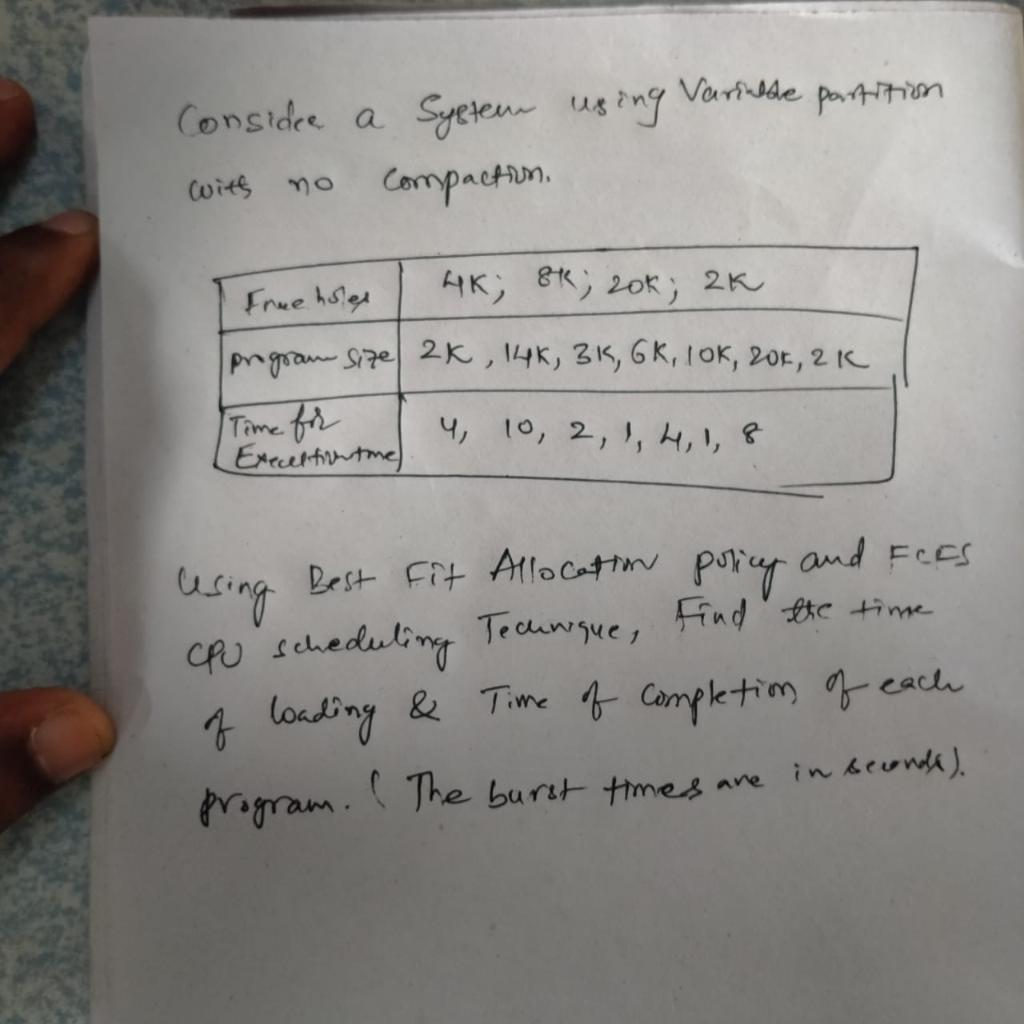 Consider a System using Variable partition
with no compaction.
Free holes 4K; 8K; 20K; 2K
program size 2K, 14K, 3K, 6K, 10K, 20K, 2K
Time for 4, 10, 2, 1, 4, 1, 8
Execution time
Using Best Fit Allocation policy and FCFS
CPU scheduling Technique, Find the time
of loading & Time of completion of each
program. (The burst times are in seconds).